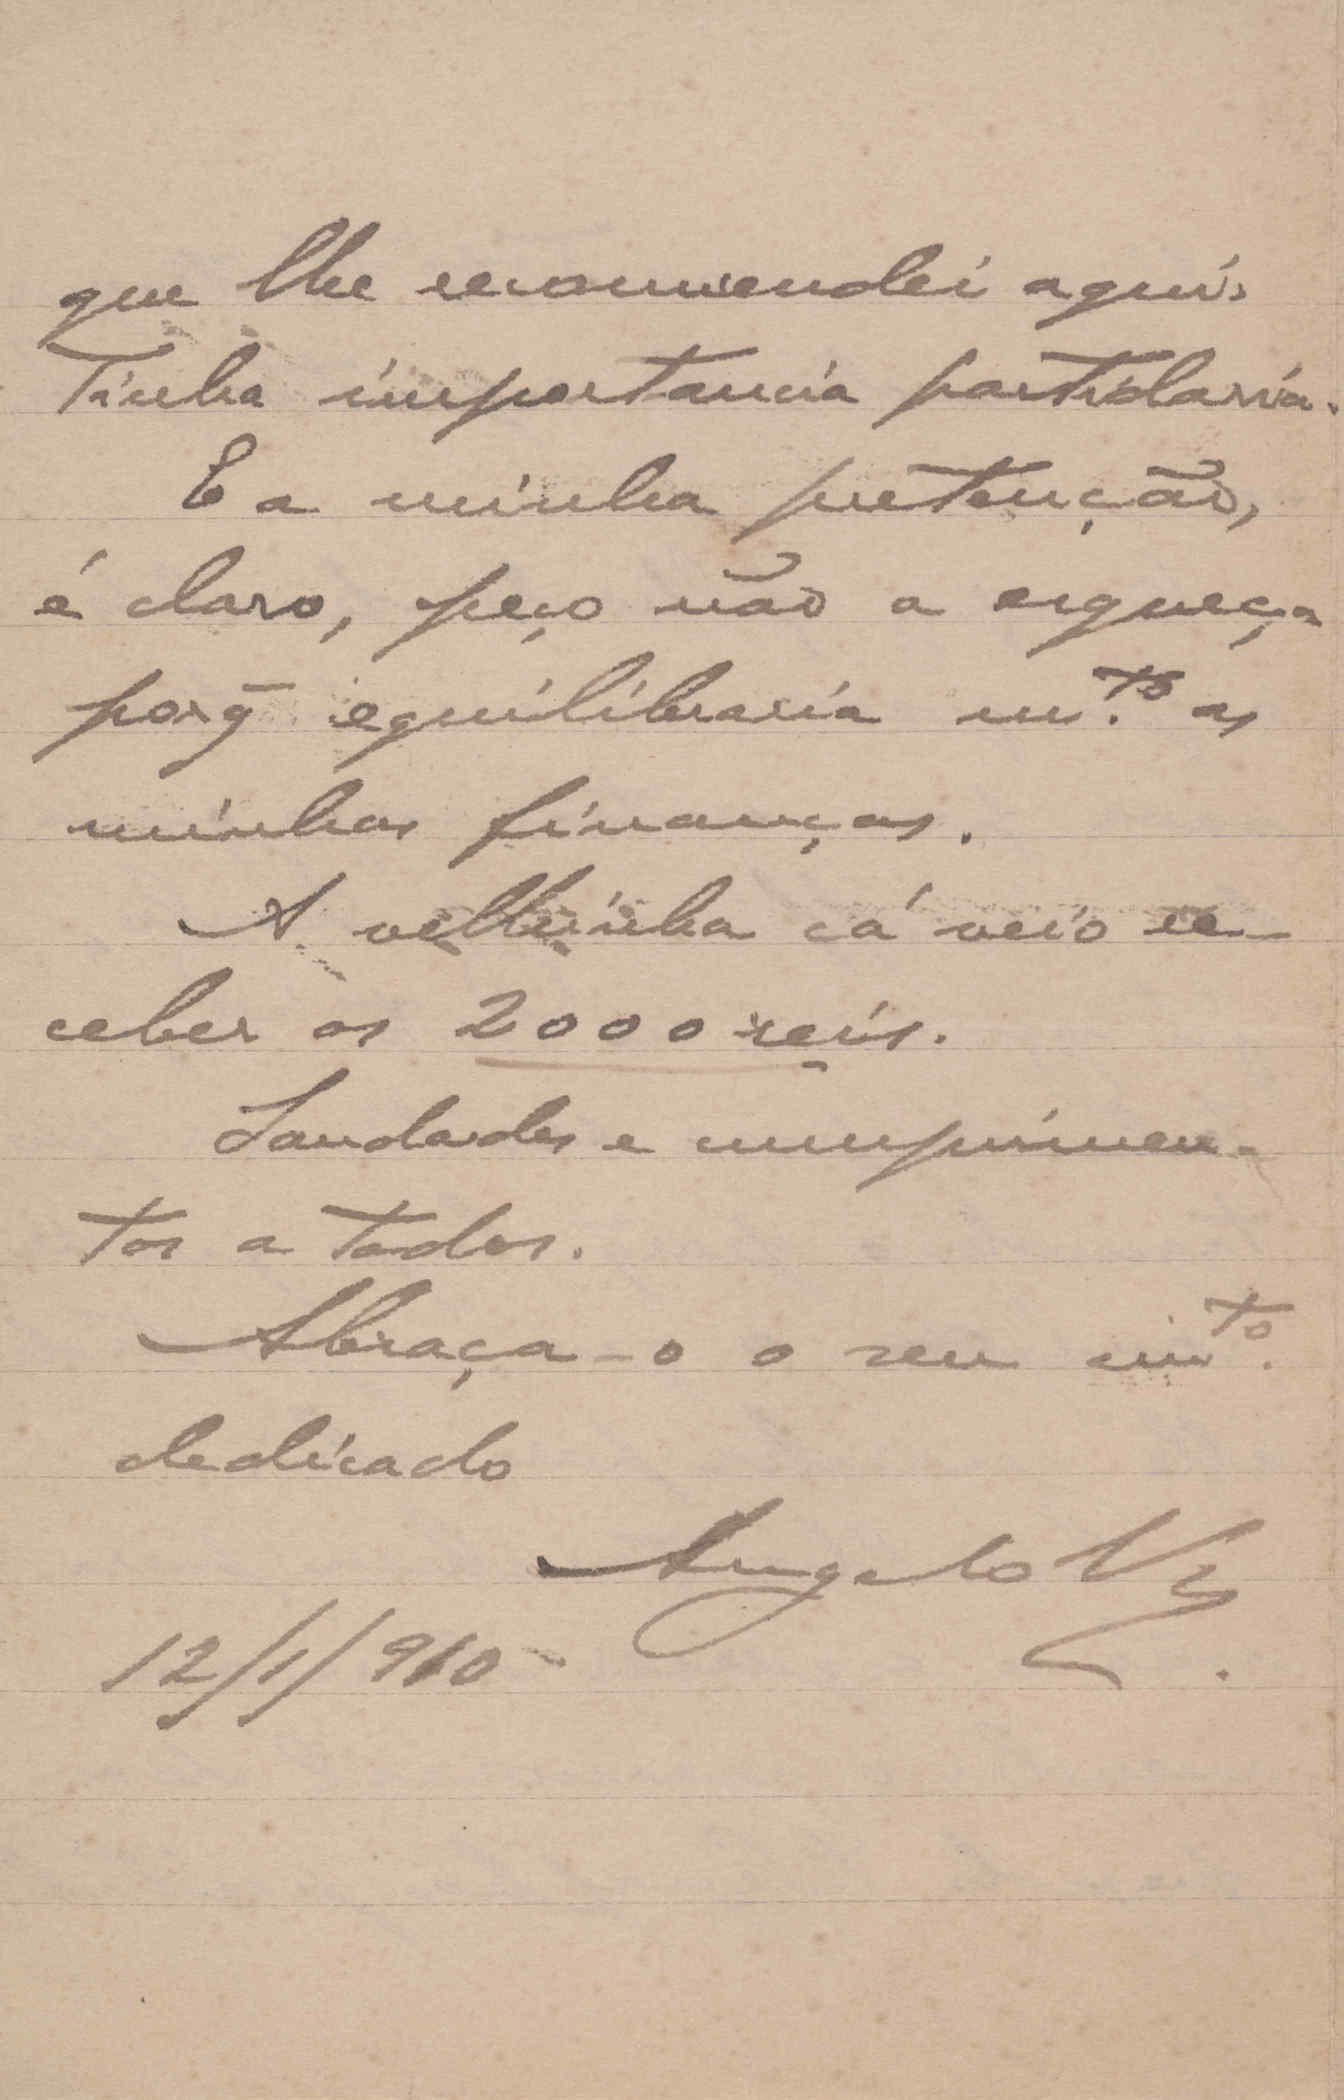 que lhe recommendei aqui,
tinha importancia partidaria.
E a minha pretenção,
é claro, peço não a esqueça
porq̄ equilibraria m.to as
minhas finanças.
A velhinha cá veio re-
ceber os 2000 reis.
Saudades e cumprimen-
tos a todos.
Abraça-o o seu m.to
dedicado
Angelo V
12/1/910